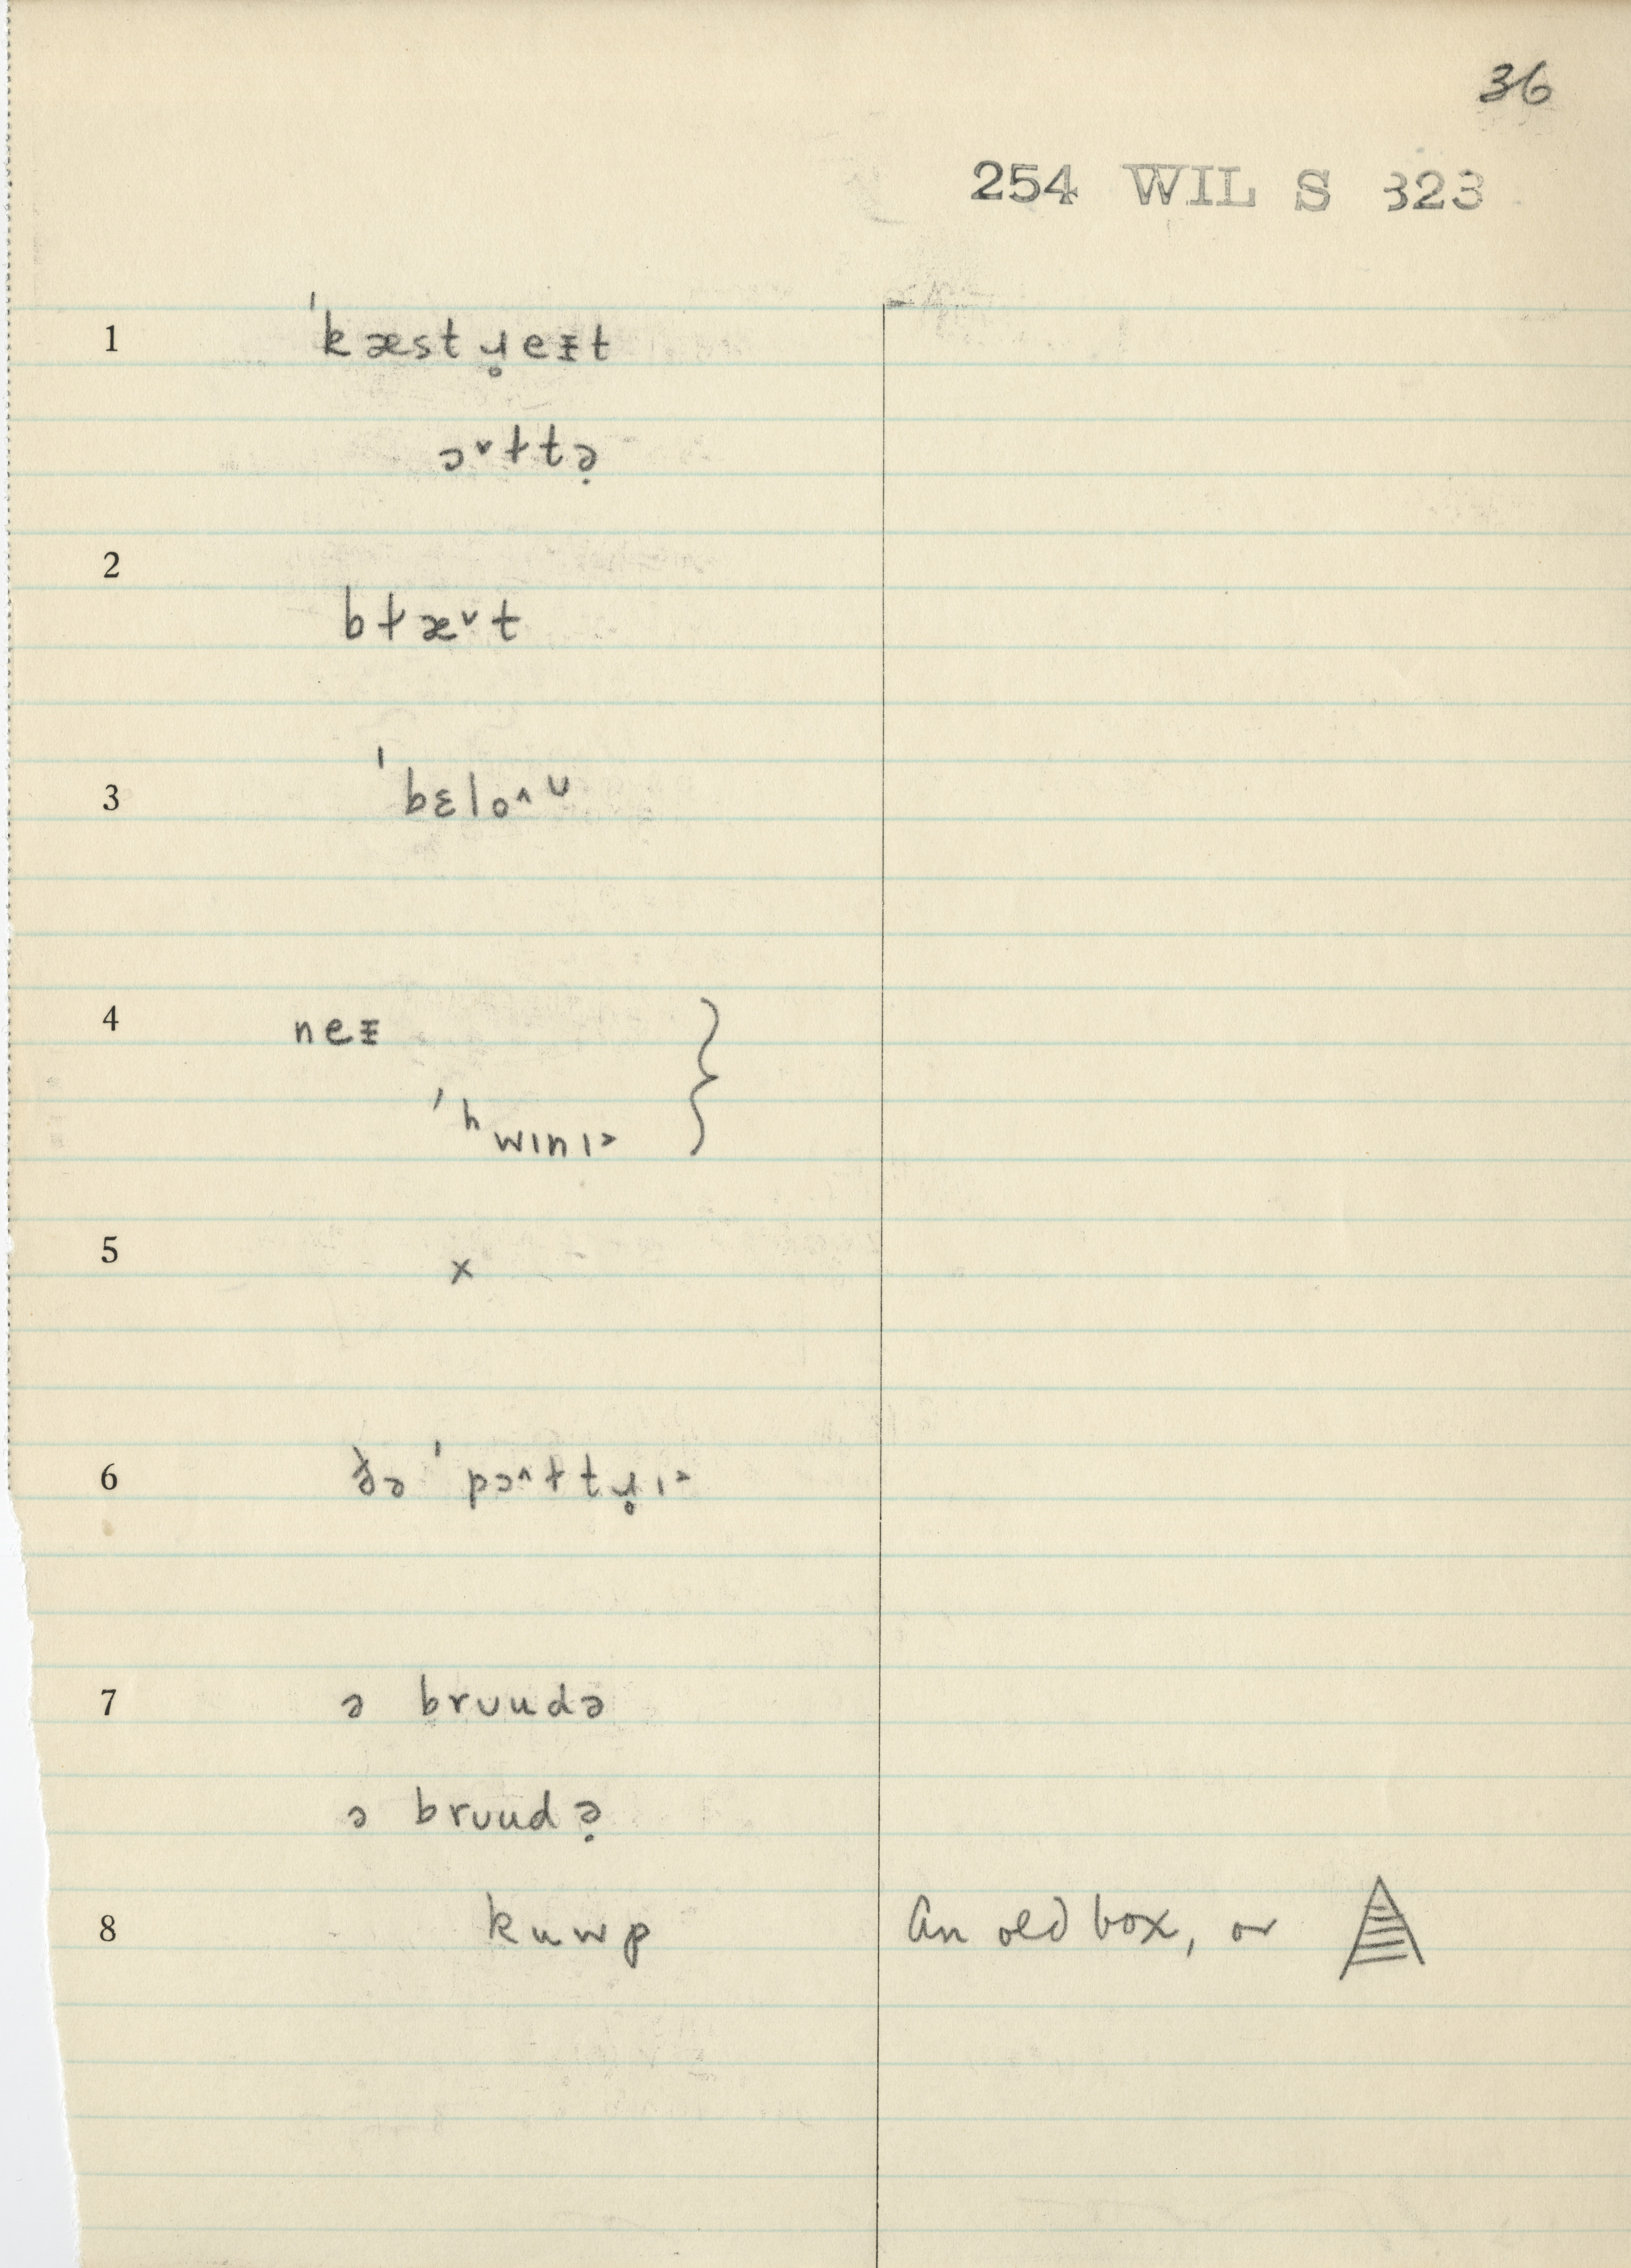 36
254 WIL S 323
1 ˈkæstɹ̥eɪ̵t
ɔ˅ɫtə̣
2 bɫæ˅t
3 ˈbɛlo^ᴜ
4 neɪ̵ }
ˈʰwɪnɪ˃
5 x
6 ðə ˈpɔ^ɫtɹ̥ɪ˃
7 ə brʊudə
ə brʊudə̣
8 kuwp An old box, or